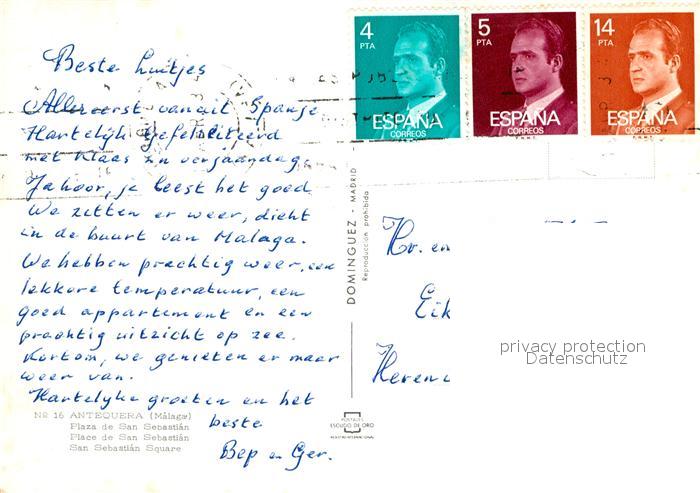 Beste Luitjes
Allereerst vanuit Spanje
Hartelijk Gefeliciteerd
met Klaas z'n verjaardag.
Ja hoor, je leest het goed
We zitten er weer, dicht
in de buurt van Malaga.
We hebben prachtig weer, een
lekkere temperatuur, een
goed appartement en een
prachtig uitzicht op zee.
Kortom, we genieten er maar
weer van.
Hartelijke groeten en het
beste
Bep en Ger.
Nº 16 ANTEQUERA (Málaga)
Plaza de San Sebastián
Place de San Sebastián
San Sebastián Square
DOMINGUEZ - MADRID
Reproducción prohibida
POSTALES
ESCUDO DE ORO
4
PTA
ESPAÑA
CORREOS
5
PTA
ESPAÑA
CORREOS
14
PTA
ESPAÑA
CORREOS
Hr. en
Eik
Heren
privacy protection
Datenschutz